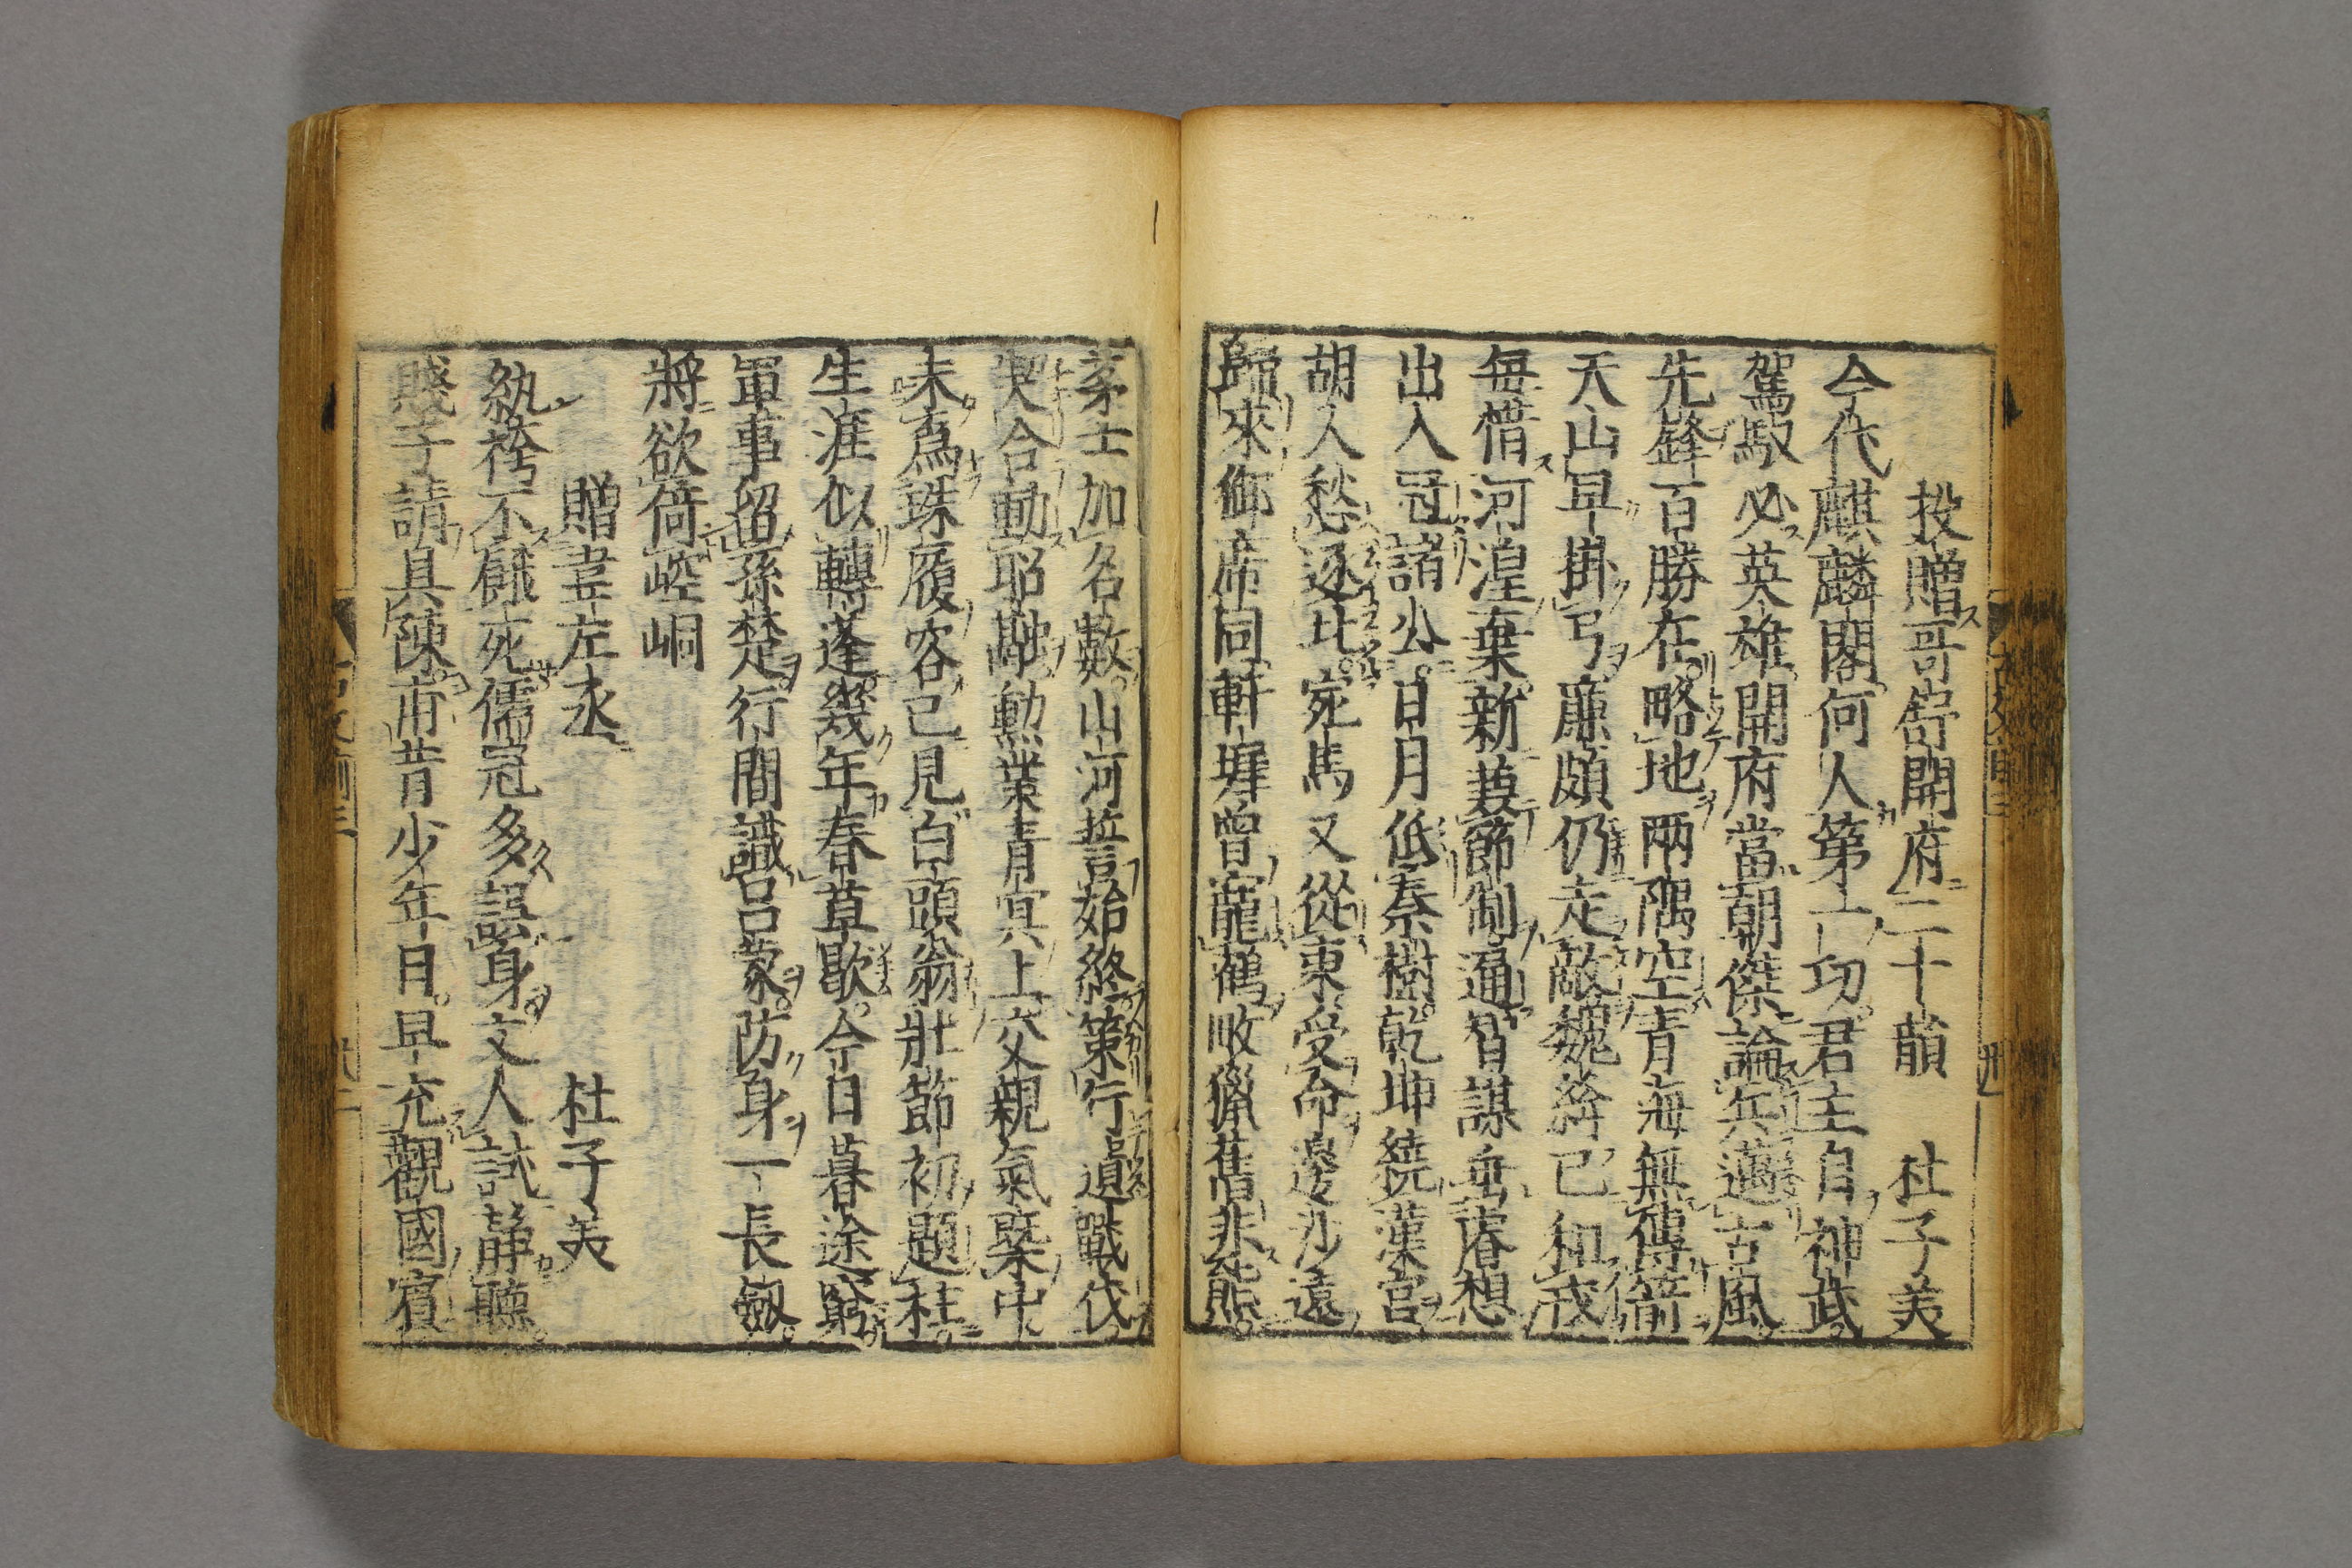 投贈哥舒開府二十韻 杜子美
今代麒麟閣何人第一功君主自神武
駕馭必英雄開府當朝傑論兵邁古風
先鋒百勝在略地兩隅空青海無傳箭
天山早掛弓廉頗仍走敵魏絳已和戎
毎惜河湟棄新兼節制通智謀垂睿想
出入冠諸公日月低秦樹乾坤繞漢宮
胡人愁逐北宛馬又從東受命邊沙遠
歸來御席同軒墀曾寵鶴畋獵舊非熊
茅土加名數山河誓始終策行遺戰伐
契合動昭融勲業青冥上交親氣槩中
未爲珠履客已見白頭翁壯節初題柱
生涯似轉蓬幾年春草歇今日暮途窮
軍事留孫楚行間識呂蒙防身一長劔
將欲倚崆峒
贈韋左丞 杜子美
紈袴不餓死儒冠多誤身丈人試靜聽
賤子請具陳甫昔少年日早充觀國賓